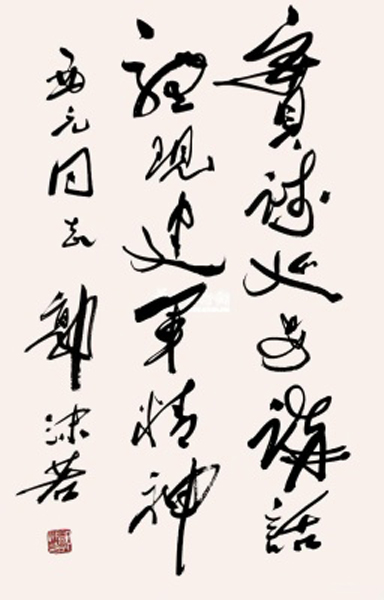 實踐延安講話
體現建軍精神
西元同志 郭沫若